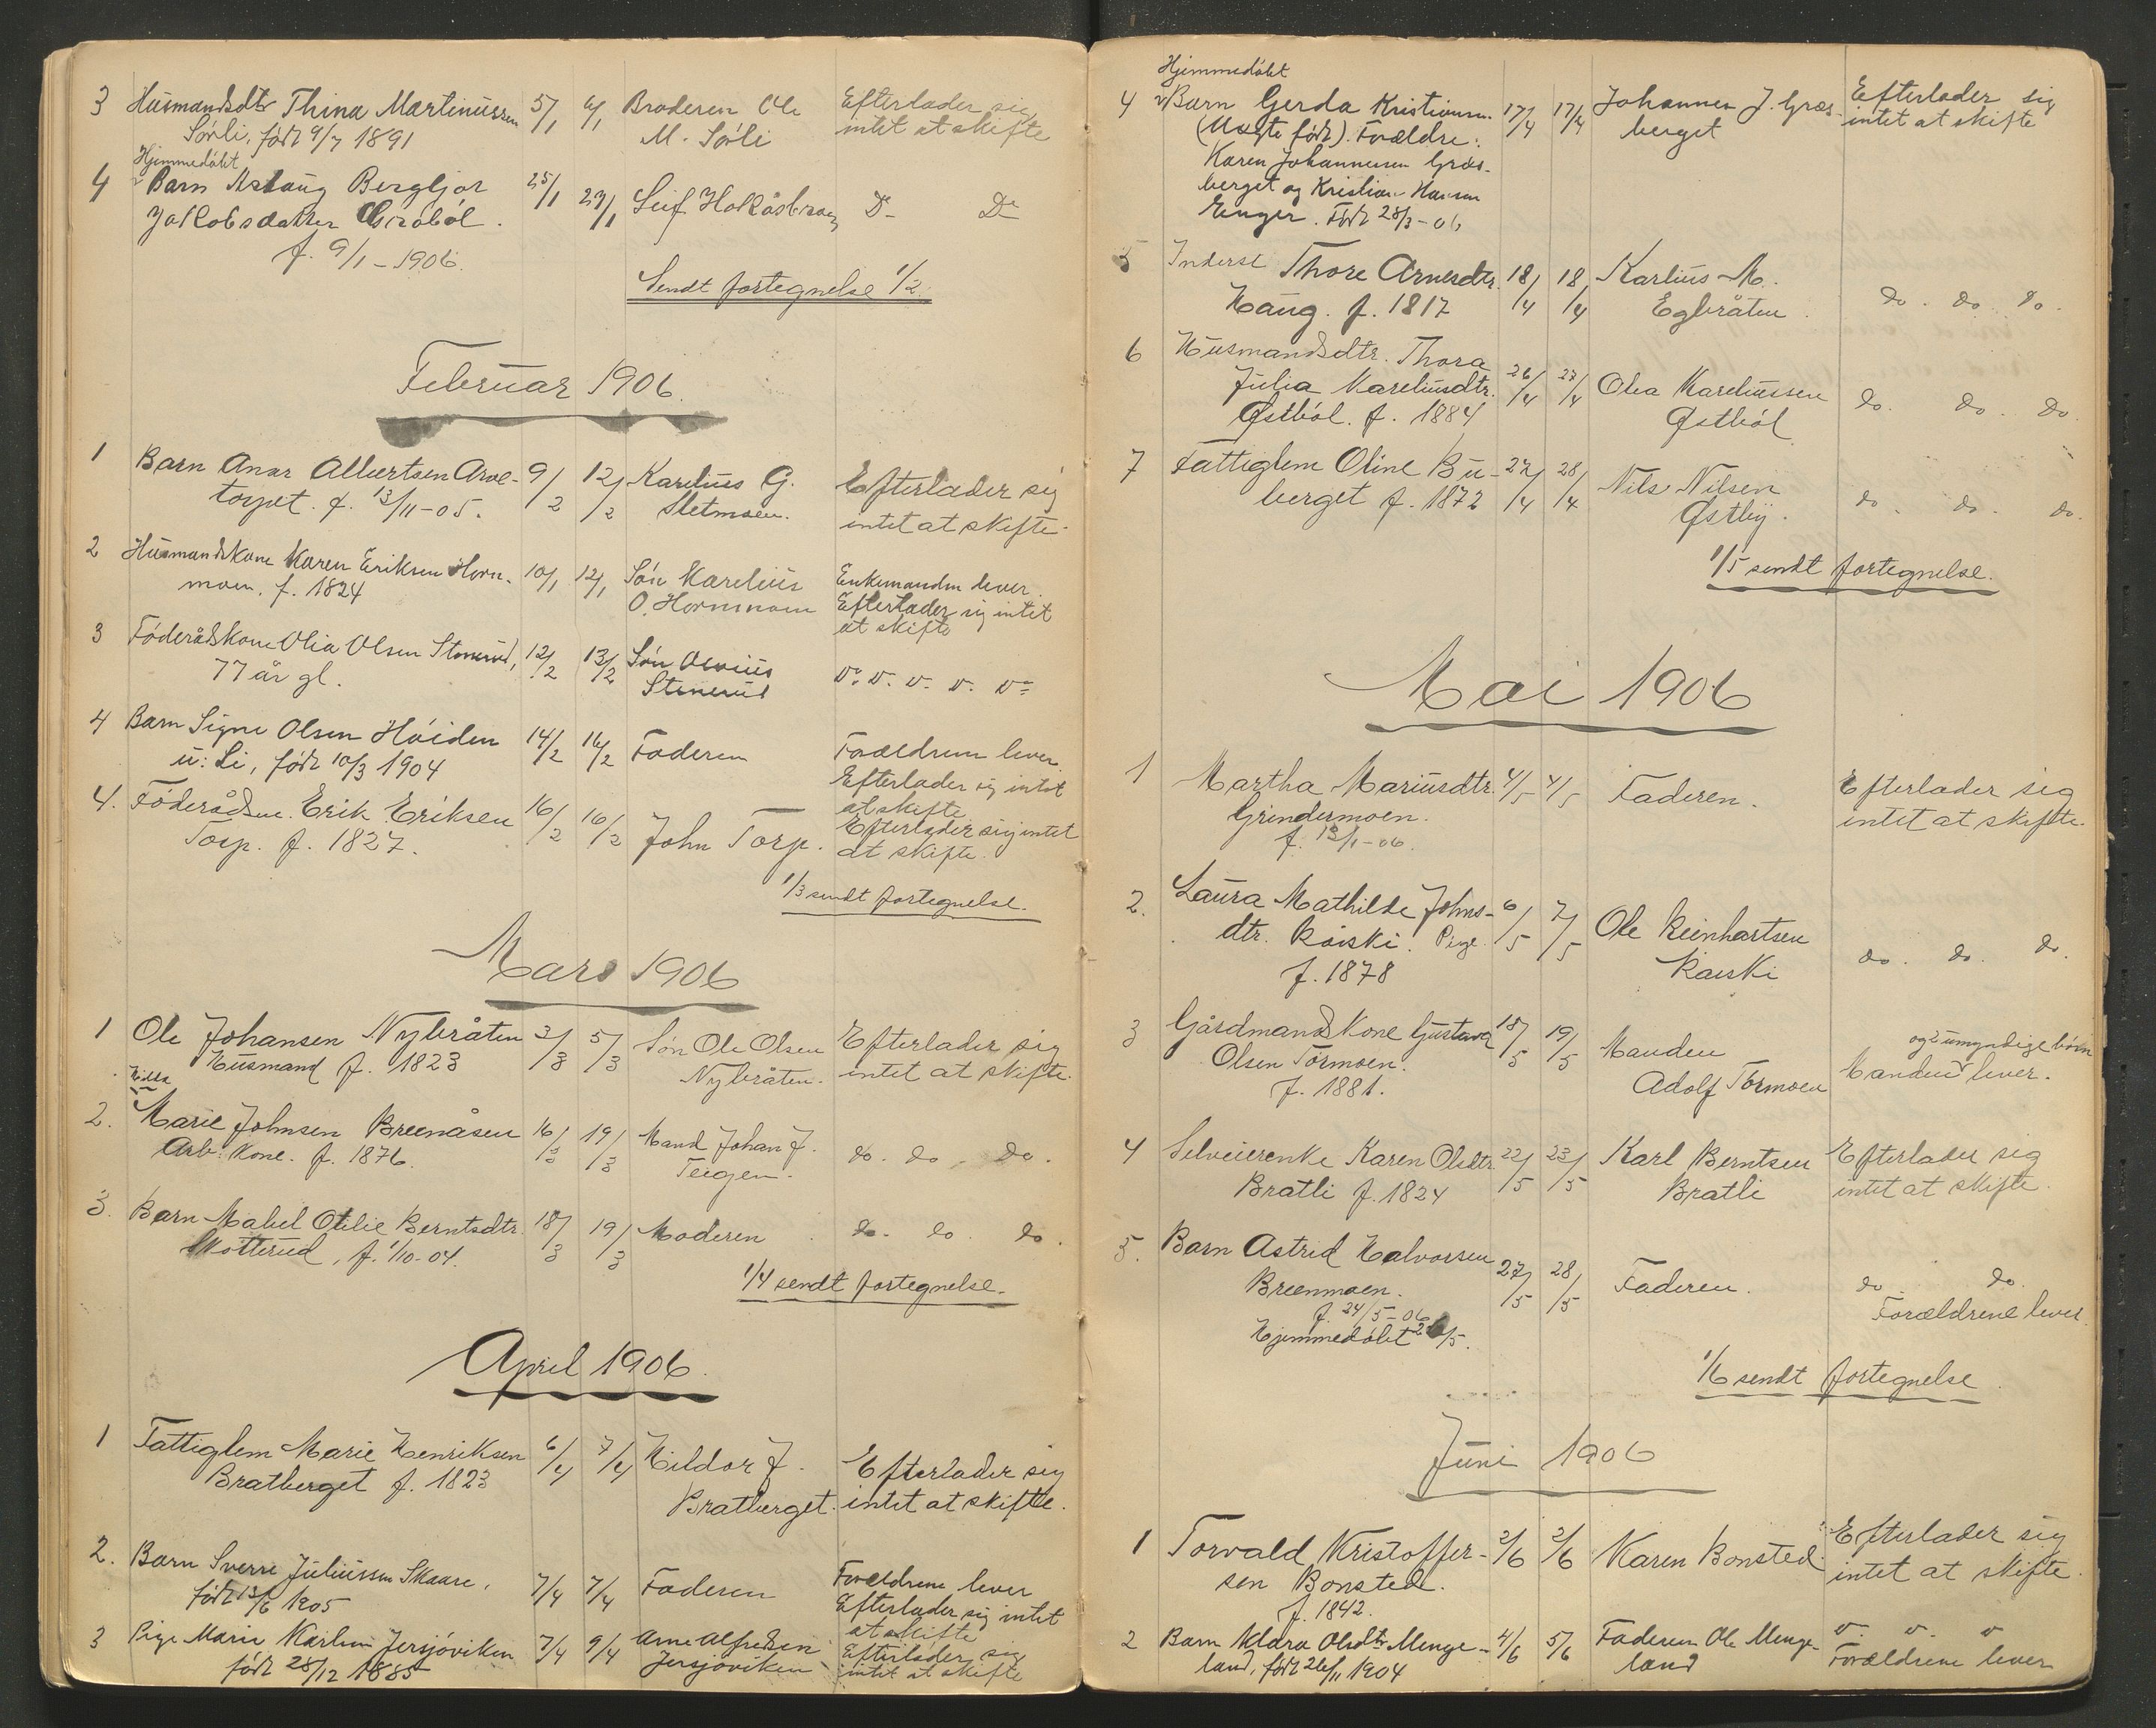 3 Husmandsdtr Thina Martinussen 5/1 6/1 Broderen Ole Efterlader sig
Sørli, født 9/7 1891 M. Sørli intet at skifte
Hjemmedøbt
4 Barn Aslaug Bergljot 25/1 27/1 Leif Hokåsbraaten Do Do
Jakobsdatter Grøbøl.
f. 9/1-1906.
Sendt fortegnelse 1/2.
Februar 1906.
1 Barn Anar Albertsen Arne- 9/2 12/2 Karelius G. Efterlader sig
torpet. f. 13/11-05. Sletmoen. intet at skifte.
2 Husmandskone Karen Eriksen Horn- 10/1 12/1 Søn Karelius Enkemanden lever.
moen. f. 1824 O. Hornmoen Efterlader sig intet
at skifte
3 Føderådskone Olia Olsen Stenerud, 12/2 13/2 Søn Olavius
77 år gl. Stenerud Do. Do. Do. Do. Do
4 Barn Signe Olsen Høiden 14/2 16/2 Faderen Forældrene lever.
u: Li, født 10/3 1904 Efterlader sig intet
at skifte
4. Føderådsm. Erik Eriksen 16/2 16/2 John Torp. Efterlader sig intet
Torp. f. 1827. at skifte.
1/3 sendt fortegnelse.
Mars 1906
1 Ole Johansen Nybråten 3/3 5/3 Søn Ole Olsen Efterlader sig
Husmand f. 1823 Nybråten. intet at skifte.
2. Marie Johnsen Breenåsen 16/3 19/3 Mand Johan J. do. do. do.
Arb. kone. f. 1876. Teigen.
3. Barn Mabel Otelie Berntsdtr. 18/3 19/3 Moderen do. do. do.
Møtterud, f. 1/10-04.
1/4 sendt fortegnelse.
April 1906.
1 Fattiglem Marie Henriksen 6/4 7/4 Hildor J. Efterlader sig
Bratberget f. 1823 Bratberget. intet at skifte.
2. Barn Sverre Juliussen Skaare, 7/4 7/4 Faderen Forældrene lever
født 13/6 1905 Efterlader sig intet
at skifte
3 Pige Marie Karlsen Jersjøviken 7/4 9/4 Arne Alfredsen Efterlader sig
født 28/12 1885 Jersjøviken intet at skifte
Hjemmedøbt
4 Barn Gerda Kristians. 17/4 17/4 Johannes J. Græs- Efterlader sig
(Uægte født). Forældre: berget intet at skifte
Karen Johannesen Græs-
berget og Kristian Hansen
Enger. Født 28/3-06
5 Inderst Thore Arnesdtr. 18/4 18/4 Karlius M.
Haug. f. 1817 Egbråten. do. do. do.
6 Husmandsdtr. Thora
Julia Kareliusdtr. 26/4 27/4 Olea Kareliussen do. do. do.
Østbøl. f. 1884 Østbøl
7 Fattiglem Oline Bu- 27/4 28/4 Nils Nilsen
berget f. 1872 Østby. do. do. do.
1/5 sendt fortegnelse.
Mai 1906
1 Martha Mariusdtr. 4/5 4/5 Faderen. Efterlader sig
Grindermoen. intet at skifte.
f. 13/1-06.
2. Laura Mathilde Johns- 6/5 7/5 Ole Reinhartsen
dtr. Røiski. Pige. Raiski do. do. do.
f. 1878
3 Gårdmandskone Gustava 18/5 19/5 Manden og 2 umyndige børn
Olsen Tormoen. Adolf Tormoen Manden lever.
f. 1881.
4 Selveierenke Karen Olsdtr 22/5 23/5 Karl Berntsen Efterlader sig
Bratli f. 1824 Bratli intet at skifte.
5. Barn Astrid Halvorsen 27/5 28/5 Faderen. do. do.
Breenmoen. Forældrene lever.
f. 24/5-06
Hjemmedøbt /5.
1/6 sendt fortegnelse
Juni 1906
1 Torvald Kristoffer- 2/6 2/6 Karen Bonsted. Efterlader sig
sen Bonsted. intet at skifte.
f. 1842.
2 Barn Klara Olsdtr Menge- 4/6 5/6 Faderen Ole Menge- Do. Do. Do
land, født 26/11 1904 land Forældrene lever